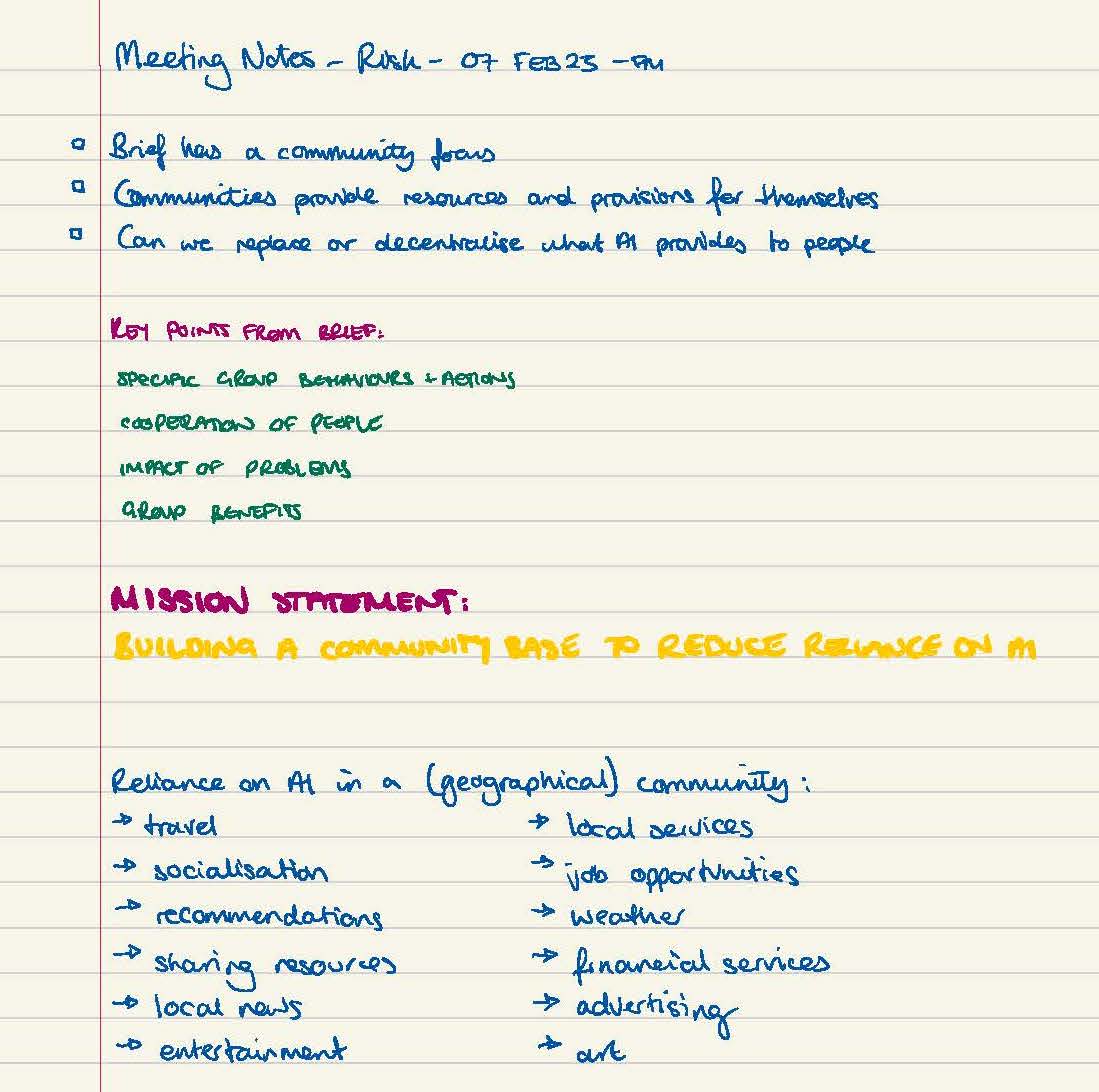 Meeting Notes - Risk - 07 FEB 23 - PM
Brief has a community focus
Communities provide resources and provisions for themselves
Can we replace or decentralise what AI provides to people
KEY POINTS FROM BRIEF:
SPECIFIC GROUP BEHAVIOURS + ACTIONS
COOPERATION OF PEOPLE
IMPACT OF PROBLEMS
GROUP BENEFITS
MISSION STATEMENT:
BUILDING A COMMUNITY BASE TO REDUCE RELIANCE ON AI
Reliance on AI in a (geographical) community:
→ travel
→ socialisation
→ recommendations
→ sharing resources
→ local news
→ entertainment
→ local services
→ job opportunities
→ weather
→ financial services
→ advertising
→ art